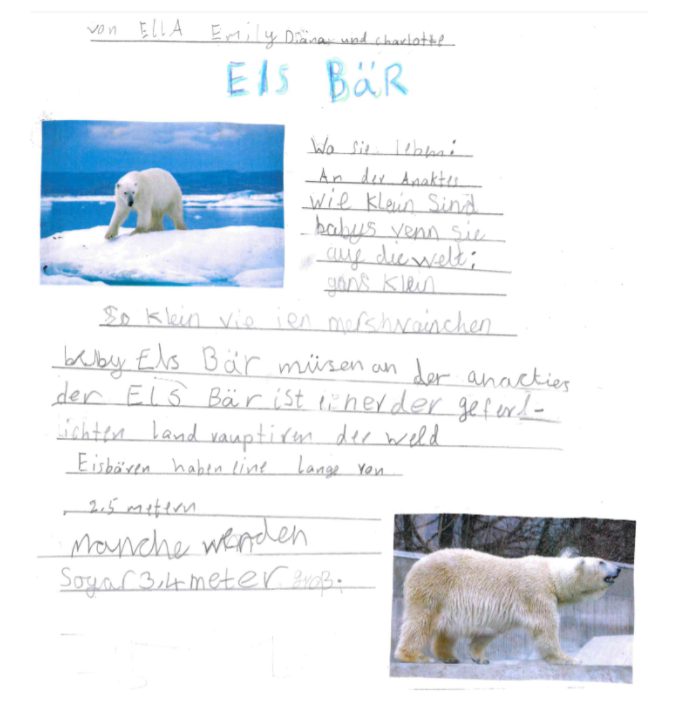 von EllA Emily Diäna und charlotte
Els BäR
Wo sie leben:
An der Anaktes
wie klein Sind
babys venn sie
auf die welt:
gans klein
So klein vie ien mershvainchen
baby Els Bär müsen an der anacties
der Els Bär ist einer der geferd-
lichten land rauptiren der weld
Eisbären haben eine Lange von
2,5 metern
Manche werden
Sogar 3,4 meter groß.